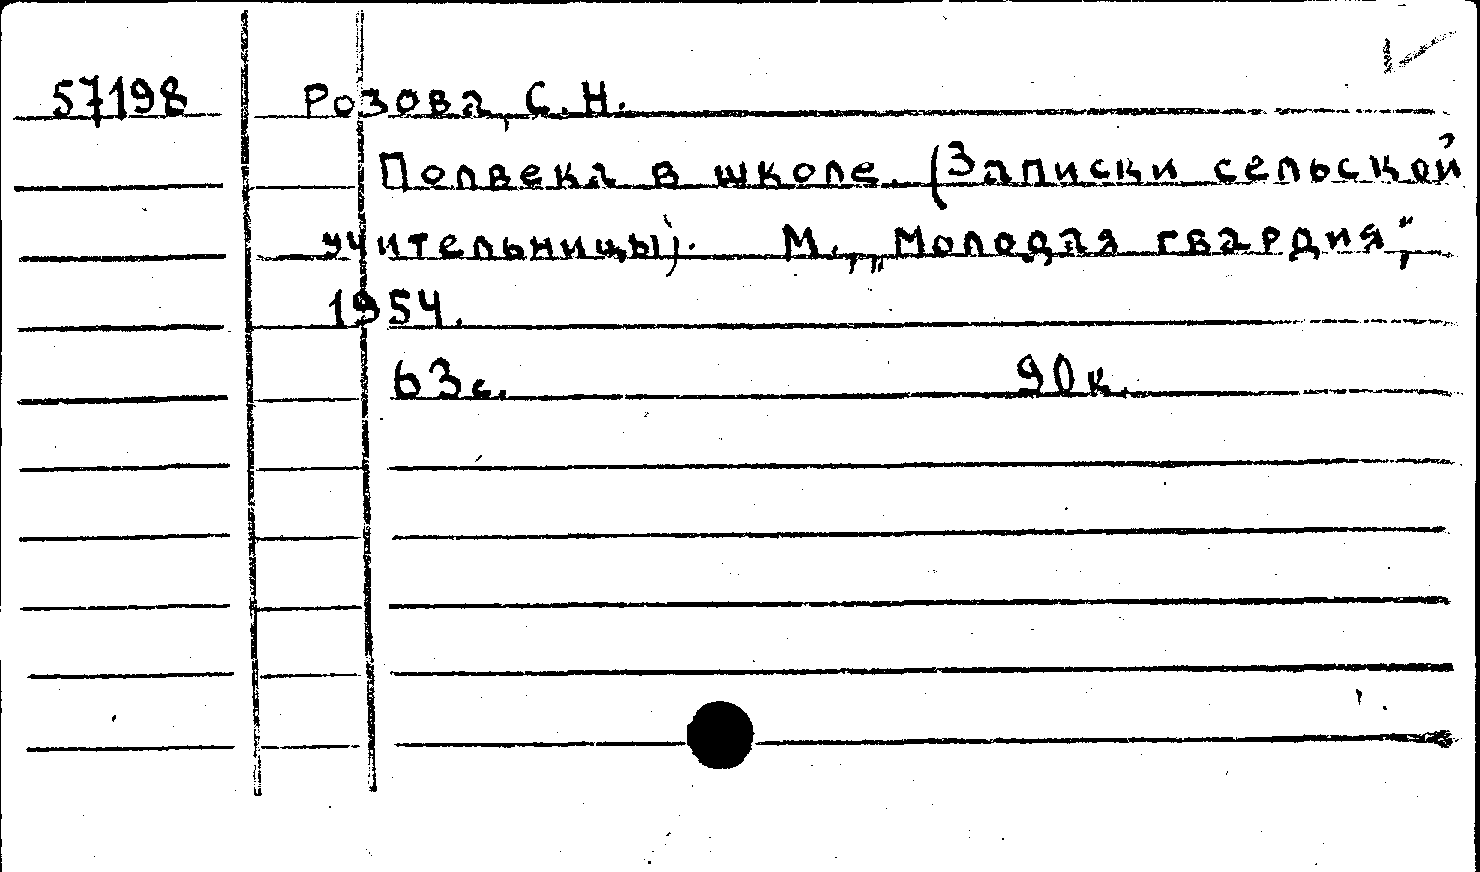 57198 Розова, С. Н.
Полвека в школе. (Записки сельской
учительницы). М., „Молодая гвардия",
1954.
63 с. 90 к.